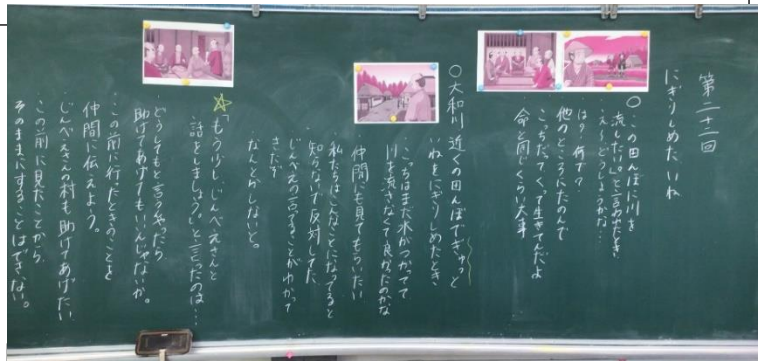 第二十二回
にぎりしめたいね
○この田んぼに川を
流したい。」と言われたとき
え～どうしようかな…
は？何で？
他のところにたのんで
こっちだってくって生きてんだよ
命と同じくらい大事
○大和川近くの田んぼでぎゅっと
いねをにぎりしめたとき
こっちはまだ水がつかってて
川を流さなくて良かったのかな
仲間にも見てもらいたい
私たちはこんなことになってると
知らないで反対してた
じんべえの言ってることがわかって
きたぞ
なんとかしないと。
☆「もう少し、じんべえさんと
話をしましょう。」と言ったのは…
どうしてもと言うんだったら
助けてあげてもいいんじゃないか。
この前に行ったときのことを
仲間に伝えよう。
じんべえさんの村も助けてあげたい
この前に見たことから、
そのままにすることはできない。